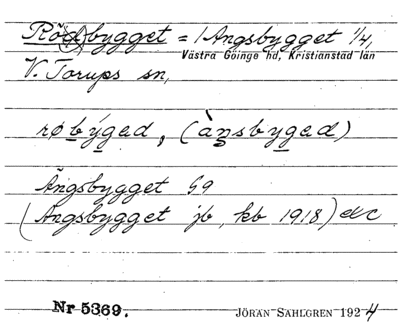 Rö(d)bygget = / Ängsbygget 1/4,
Västra Göinge hd, Kristianstad län
V. Torups sn,
røbýgad, (àŋsbygad)
Ängsbygget G9
(Ängsbygget jb, kb 1918) etc
Nr 5369. JÖRAN SAHLGREN 1924